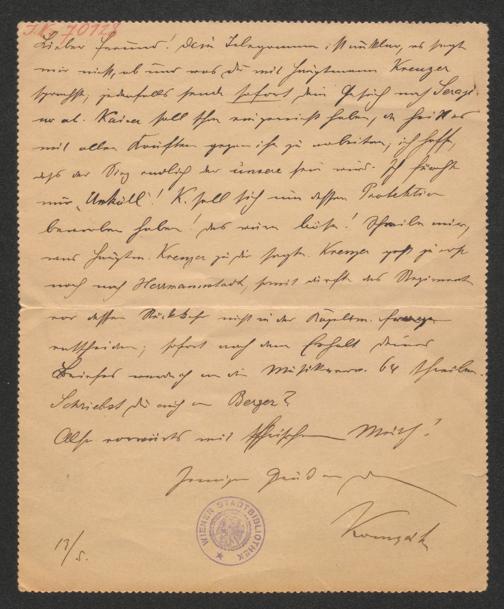 I.N. 70928
Lieber Freund! Dein Telegramm ist unklar, es sagt
mir nicht, ob und was Du mit Hauptmann Kreuzer
sprachst; jedenfalls sende sofort dein Gesuch nach Seraje-
vo ab. Kaiser soll schon eingereicht haben, da heißt es
mit allen Kräften gegen ihn zu arbeiten, ich hoffe,
daß der Sieg endlich der unsere sein wird. Ich fürchte
nur „ ! K. soll sich um dessen Protektion
beworben haben! das wäre böse! Schreibe mir,
was Hauptm. Kreuzer zu dir sagte. Kreuzer geht zuerst
noch nach Herrmannstadt, somit dürfte das Regiment
vor dessen Rückkehr nicht in der Kapellm.
entscheiden; sofort nach dem Erhalt deines
Briefes werde ich an die 64 schreiben.
Schriebst Du auch an Berger?
Also vorwärts mit frischem Muth!
Innigen Gruß an
Komzák
13/5.
WIENER STADTBIBLIOTHEK